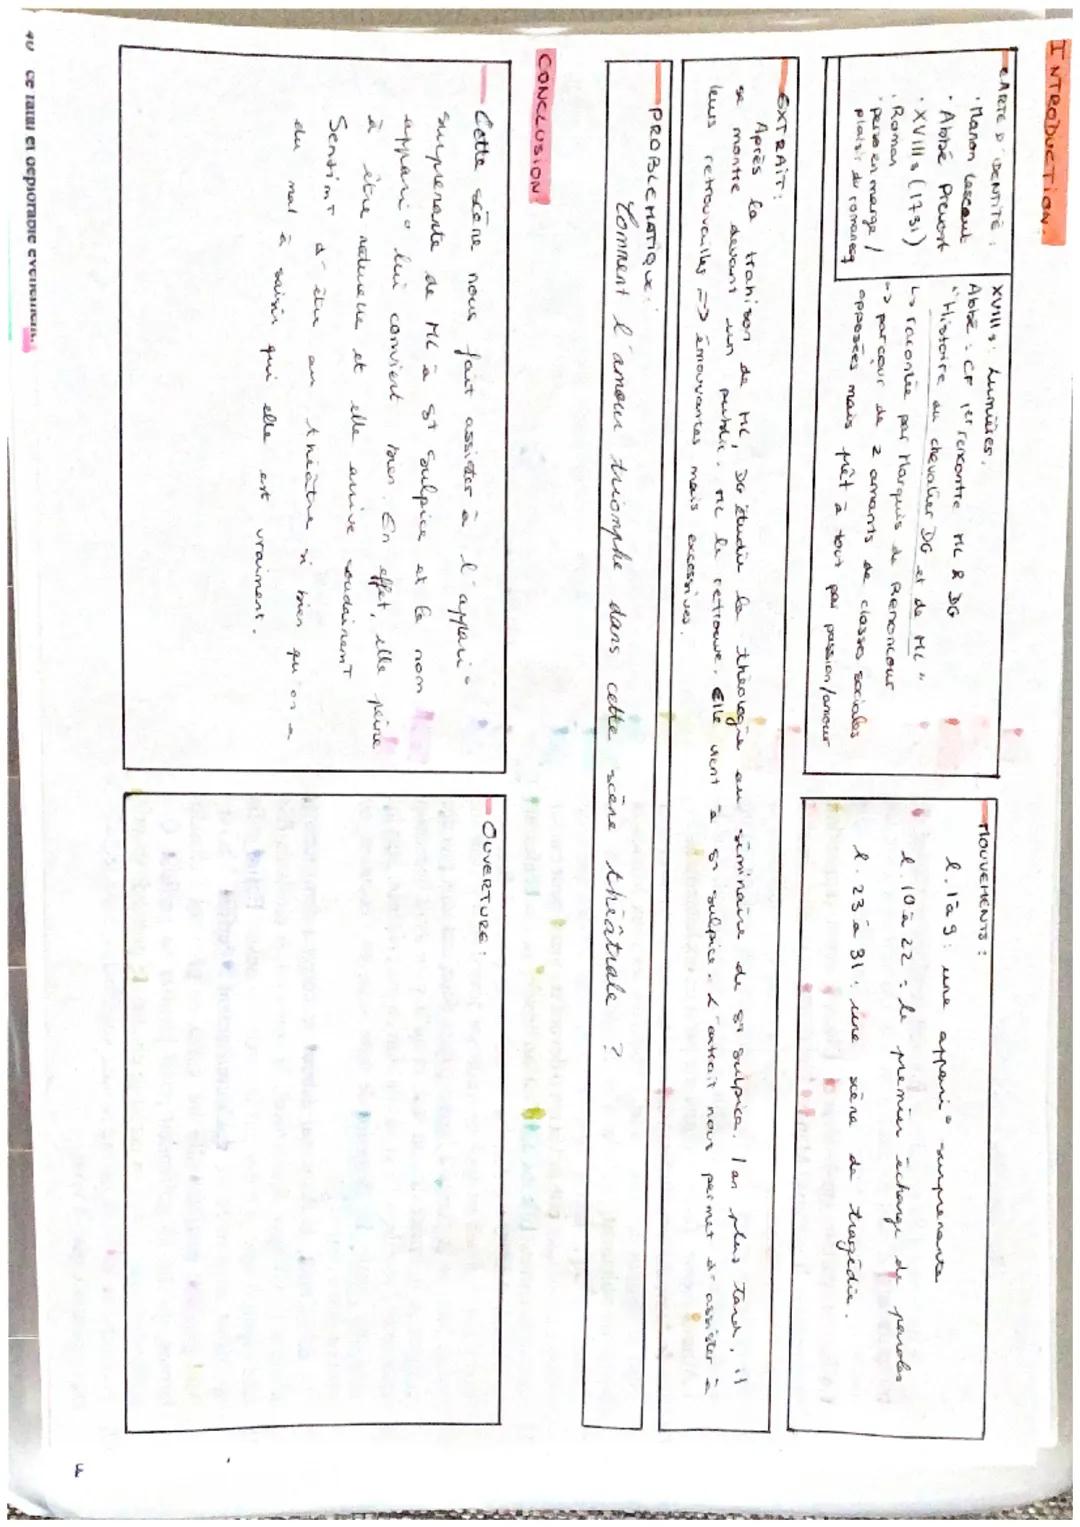 INTRODUCTION.
CARTE D'IDENTITÉ :
· Manon Lescaut
· Abbé Prévost
· XVIIIs (1731)
· Roman
· perso en marge /
plaisir du romanesq
XVIIIs : Lumières.
Abbé : cf 1er rencontre ML & DG
"Histoire du chevalier DG et de ML"
↳ racontée par Marquis de Renoncour
=> parcour de 2 amants de classes sociales
opposées mais prêt à tout par passion/amour
MOUVEMENTS :
l. 1 à 9 : une appari° surprenante
l. 10 à 22 : le premier échange de paroles
l. 23 à 31 : une scène de tragédie.
EXTRAIT :
Après la trahison de ML, DG étudie la théologie au séminaire de St Sulpice. 1 an plus tard, il
se montre devant un public. ML le retrouve. Elle vient à St Sulpice. L'extrait nous permet d'assister à
leurs retrouvailles => émouvantes mais excessives.
PROBLEMATIQUE :
Comment l'amour triomphe dans cette scène théâtrale ?
CONCLUSION :
Cette scène nous fait assister à l'appari°
surprenante de ML à St Sulpice et le nom
appari° lui convient bien. En effet, elle peine
à être naturelle et elle arrive soudainemT
SentimT d'être au théâtre si bien qu'on a
du mal à saisir qui elle est vraiment.
OUVERTURE :
40 ce fatal et déplorable événement.